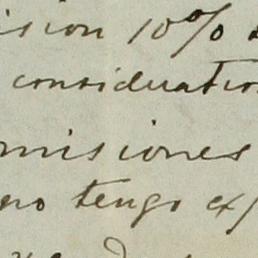 ision 10%
consideration
misiones
no tengo ex